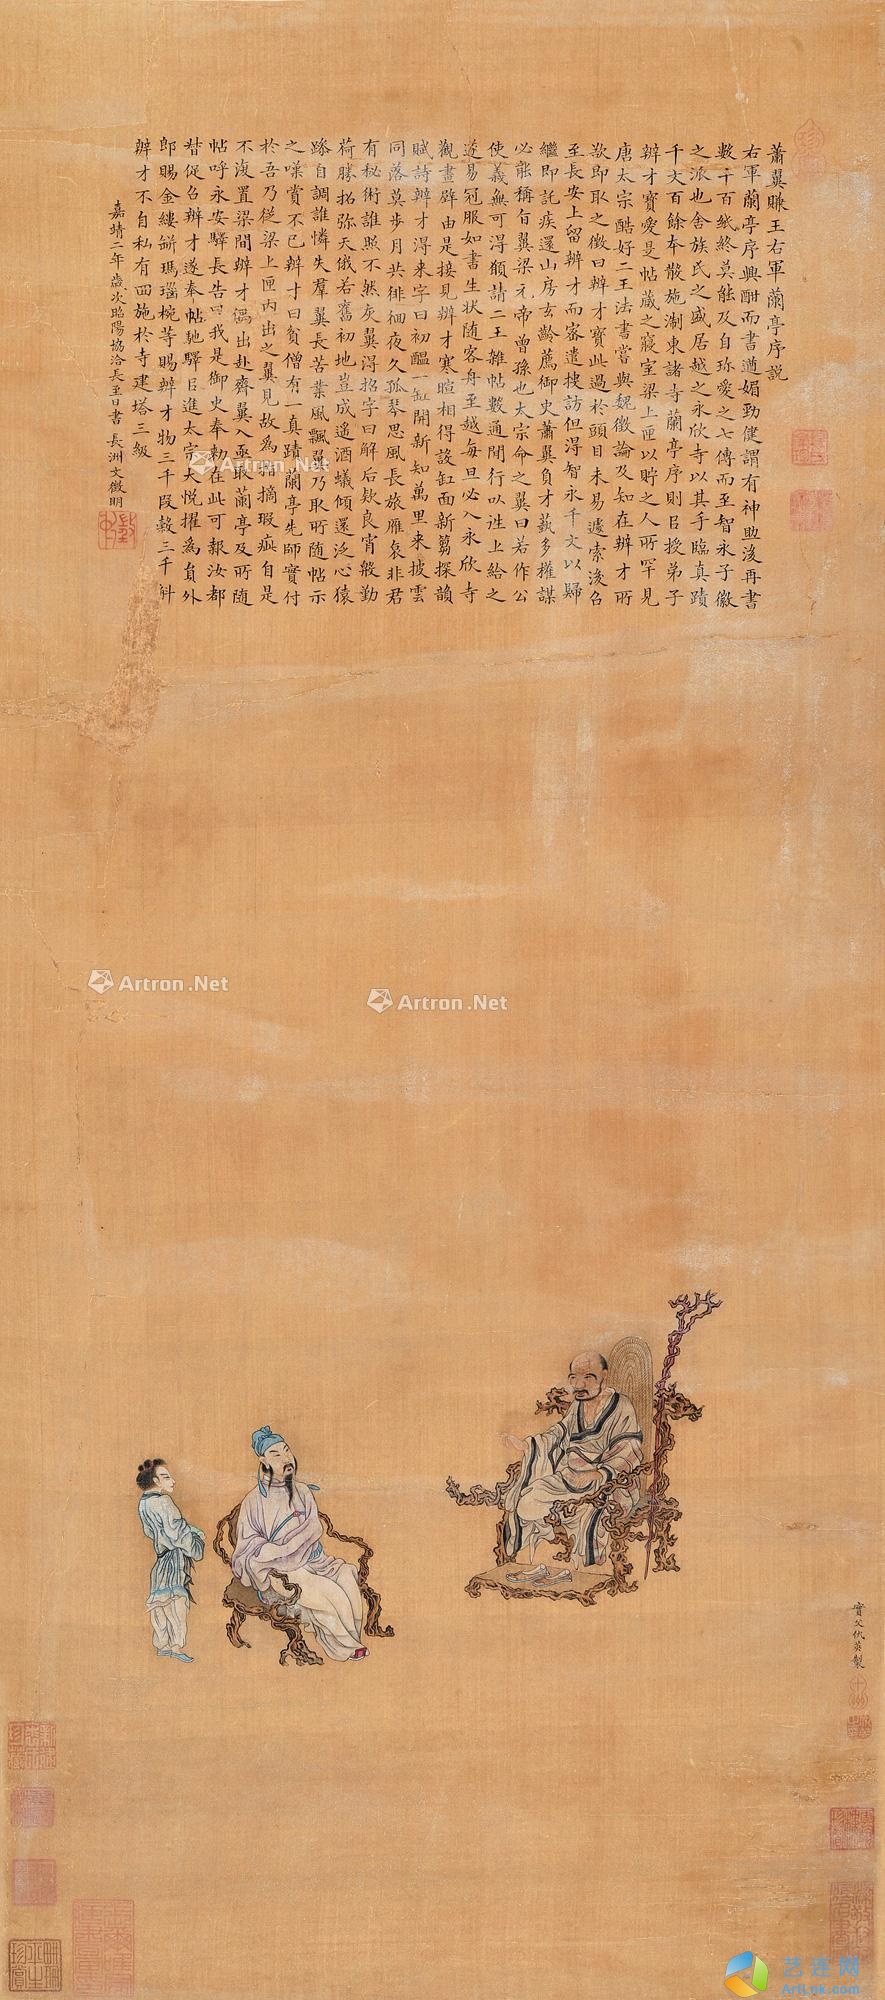 蕭翼賺王右軍蘭亭序説
右軍蘭亭序興酣而書遒媚勁健謂有神助後再書
數千百紙終莫能及自珎愛之七傳而至智永子徽
之派也舍族氏之盛居越之永欣寺以其手臨真蹟
千文百餘本散施淛東諸寺蘭亭序則㠯授弟子
辨才寳愛是帖藏之寢室梁上匣以貯之人所罕見
唐太宗酷好二王法書嘗與魏徵論及知在辨才所
欲即取之徵曰辨才寳此過於頭目未易遽索後召
至長安上留辨才而審遣搜訪但得智永千文以歸
繼即託疾還山房玄齡薦御史蕭翼負才蓺多權謀
必能稱旨翼梁元帝曾孫也太宗命之翼曰若作公
使義無可得願請二王雜帖數通間行以往上給之
遂易冠服如書生状随客舟至越每旦必入永欣寺
觀畫壁由是接見辨才寒暄相得設缸面新篘探韻
賦詩辨才得来字曰初醖一缸開新知萬里来披雲
同落莫步月共徘徊夜久孤琴思風長旅雁哀非君
有秘術誰照不然灰翼得招字曰解后欵良宵殷勤
荷勝招弥天俄若舊初地豈成遥酒蟻傾還泛心猿
躁自調誰憐失羣翼長苦業風飄翼乃取所随帖示
之嘆賞不已辨才曰貧僧有一真蹟蘭亭先師實付
於吾乃從梁上匣内出之翼見故為指摘瑕疵自是
不復置梁間辨才偶出赴齊翼入亟取蘭亭及所随
帖呼永安驛長告曰我是御史奉勅在此可報汝都
督促召辨才遂奉帖馳驛㠯進太宗大悦擢為負外
郎賜金縷缾瑪瑙椀等賜辨才物三千段糓三千斛
辨才不自私有囬施於寺建塔三級
嘉靖二年歲次昭陽協洽長至日書 長洲文徵明
實父仇英製
十洲
Artron.Net
Artron.Net
Artron.Net
艺连网
ArtLnk.com